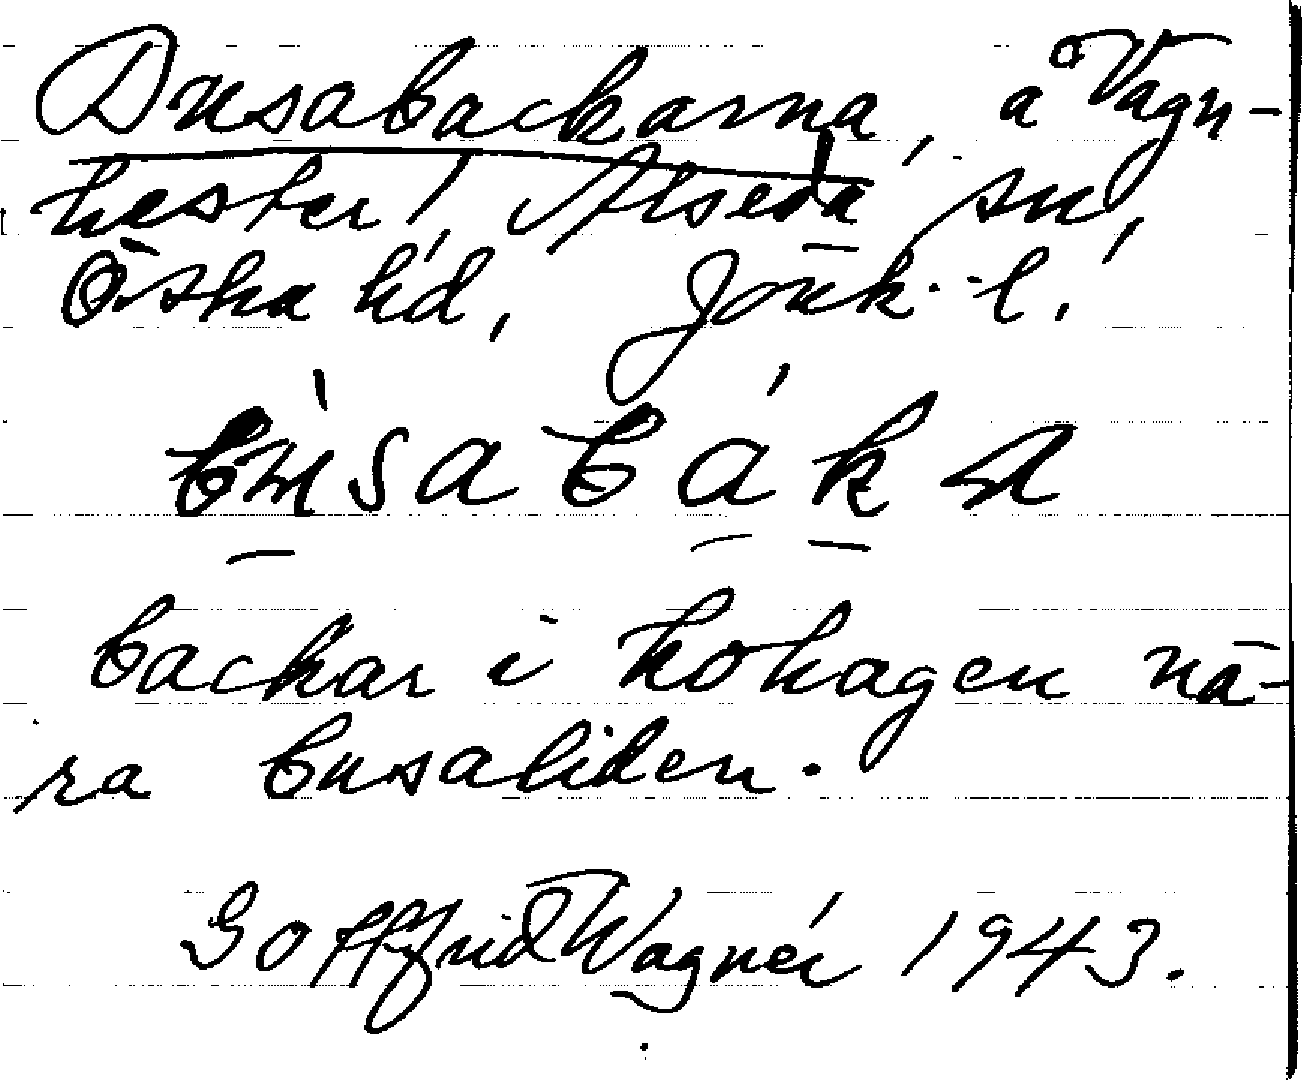 Busabackarna, å Vagn-
hester, Alseda sn,
Östra hd, Jönk. l.
bùsabáka
backar i kohagen nä-
ra busaliden.
Gottfrid Wagnér 1943.